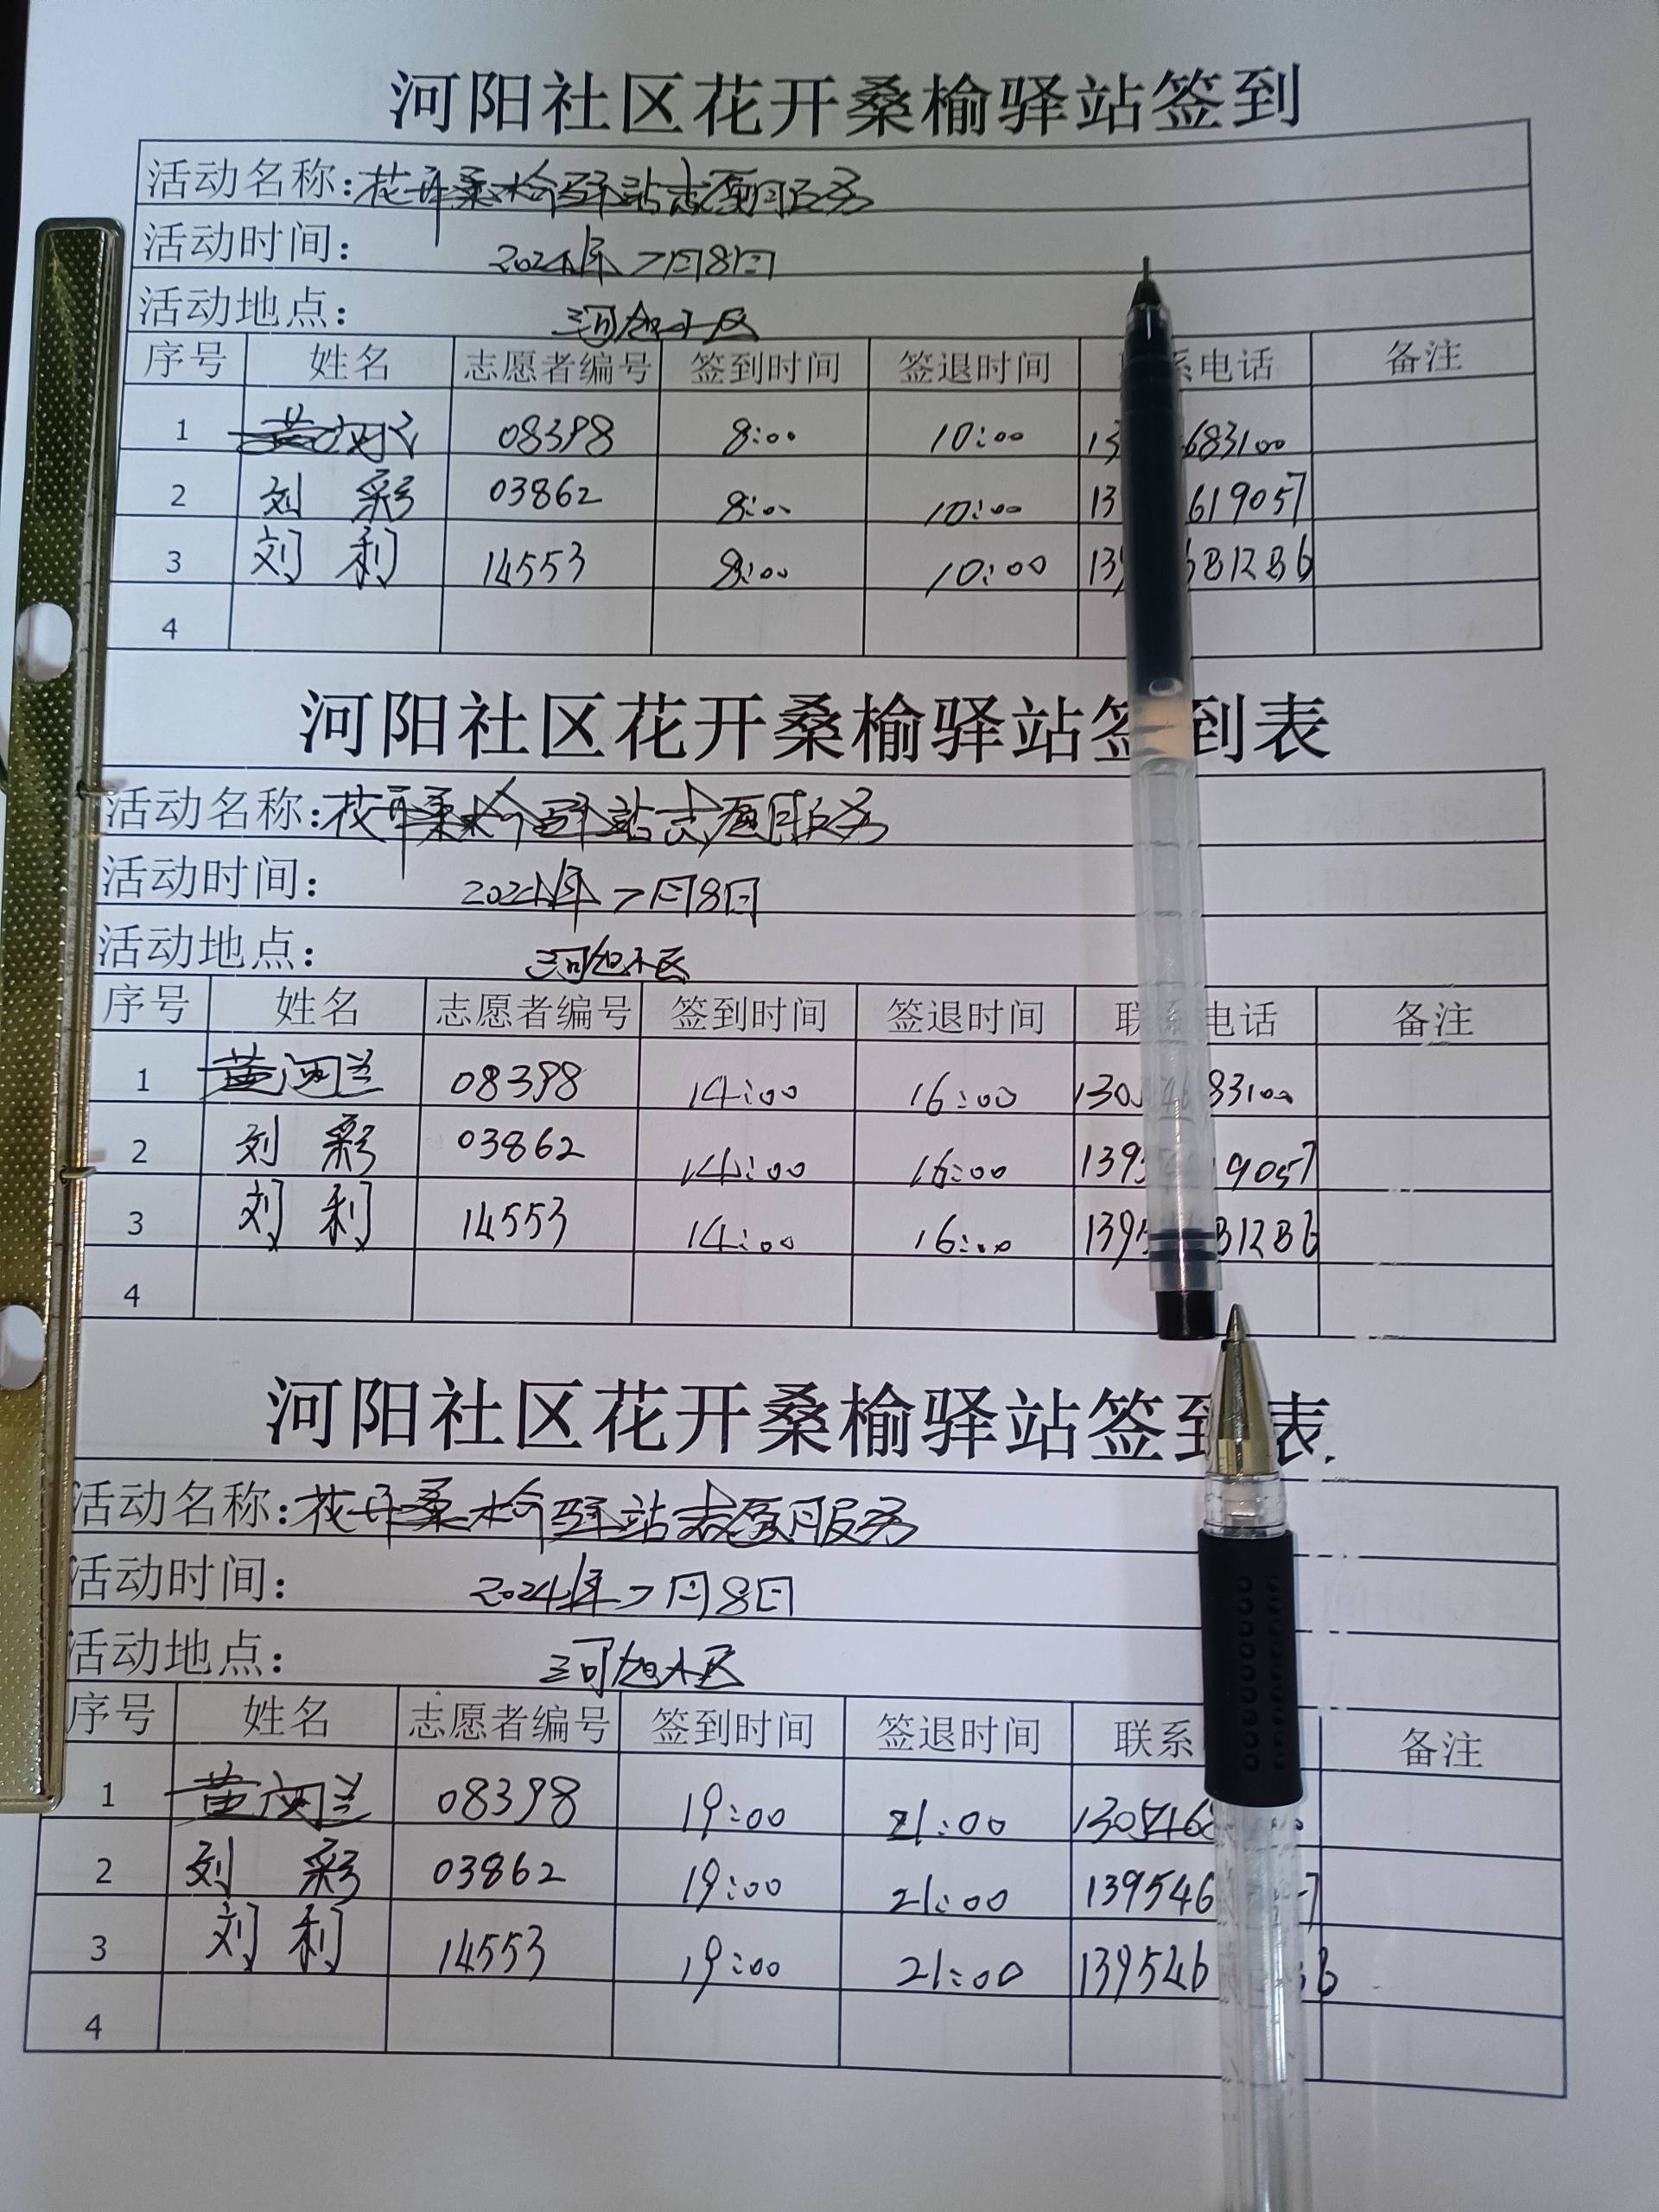 河阳社区花开桑榆驿站签到
活动名称:花开桑榆驿站志愿服务
活动时间: 2024年7月8日
活动地点: 河旭小区
序号 姓名 志愿者编号 签到时间 签退时间 系电话 备注
1 黄 08398 8:00 10:00 13 683100
2 刘彩 03862 8:00 10:00 13 619057
3 刘利 14553 8:00 10:00 13 681286
4
河阳社区花开桑榆驿站签到表
活动名称:花开桑榆驿站志愿服务
活动时间: 2024年7月8日
活动地点: 河旭小区
序号 姓名 志愿者编号 签到时间 签退时间 联系电话 备注
1 黄 兰 08398 14:00 16:00 130 83100
2 刘彩 03862 14:00 16:00 139 19057
3 刘利 14553 14:00 16:00 1395 81286
4
河阳社区花开桑榆驿站签到表
活动名称:花开桑榆驿站志愿服务
活动时间: 2024年7月8日
活动地点: 河旭小区
序号 姓名 志愿者编号 签到时间 签退时间 联系 备注
1 黄 兰 08398 19:00 21:00 1305468
2 刘彩 03862 19:00 21:00 139546 7
3 刘利 14553 19:00 21:00 139546 6
4